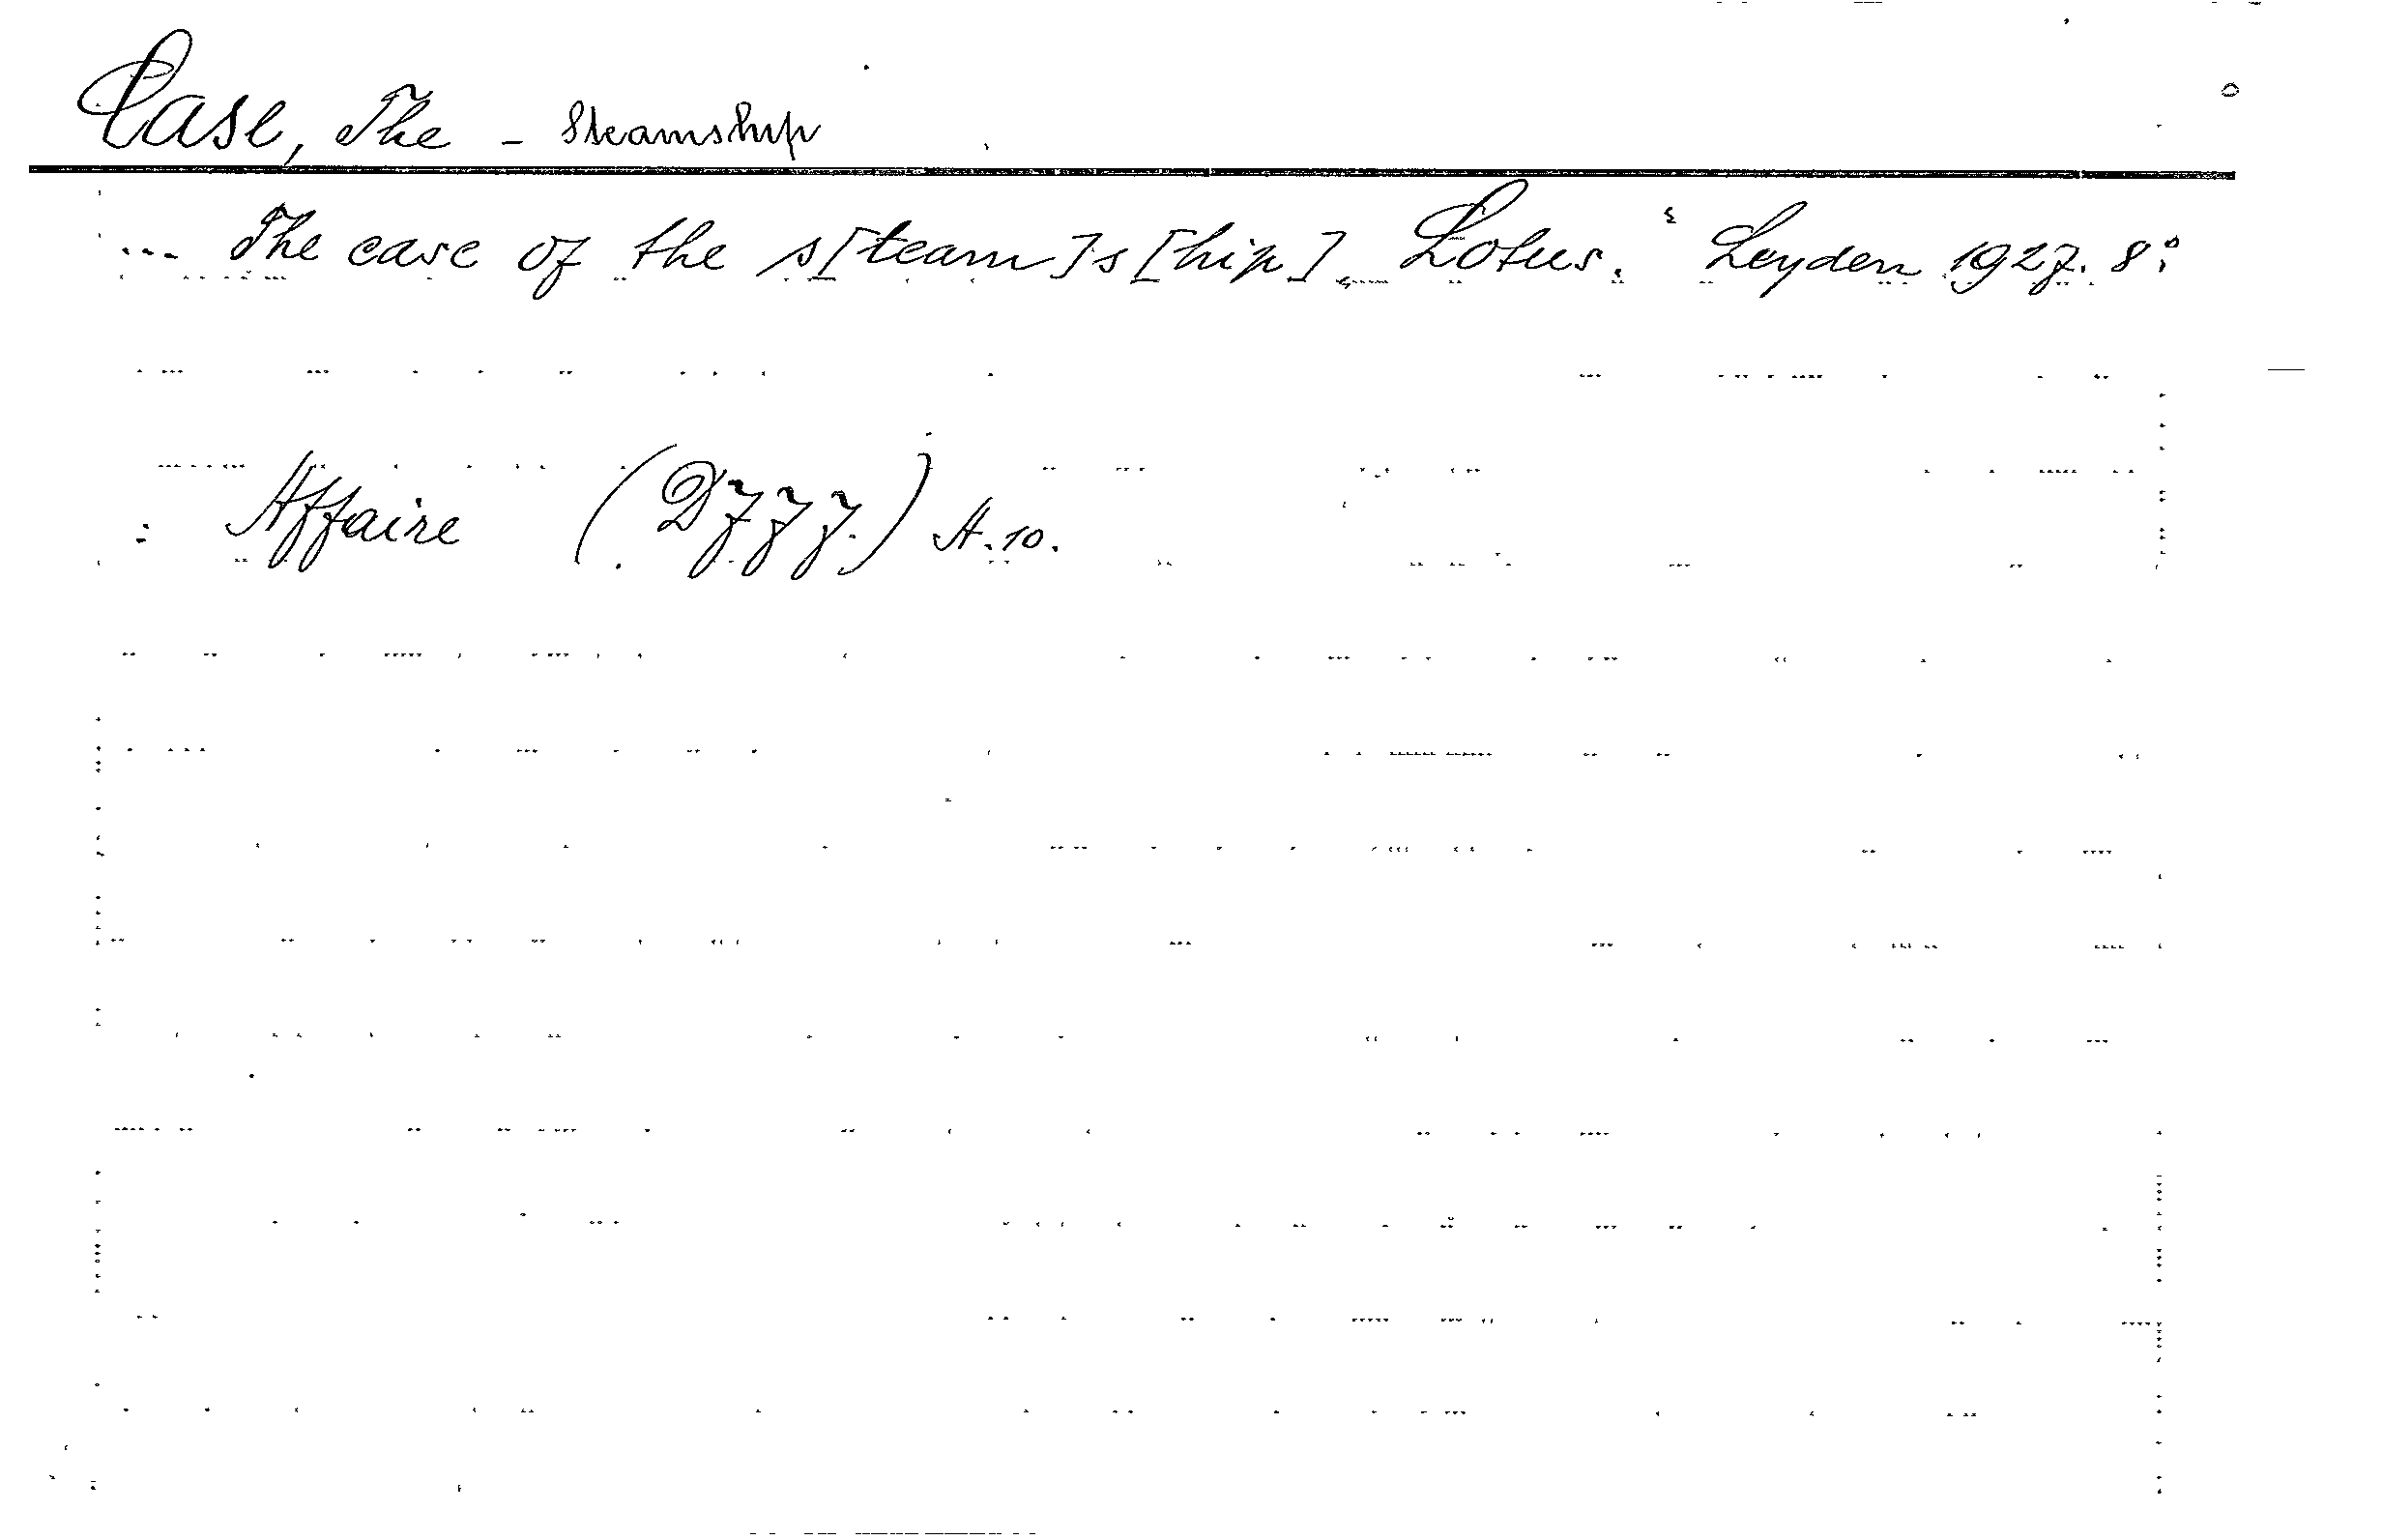 Case, The - Steamship
... The case of the s[team]s[hip] „Lotus.“ Leyden 1927. 8°.
: Affaire (DJJJ.) A.10.